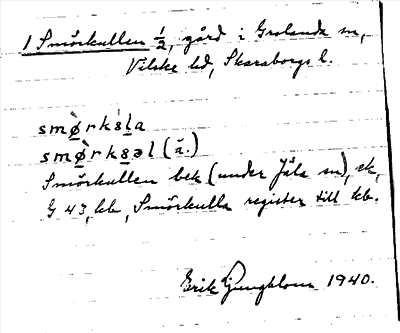 1 Smörkullen 1/2, gård i Grolanda sn,
Vilske hd, Skaraborgs l.
smø̀rksḷa
smø̀rksəl (ä.)
Smörkullen bek (under Jäla sn), ek,
G 43, kb, Smörkulla register till kb.
Erik Ljungblom 1940.